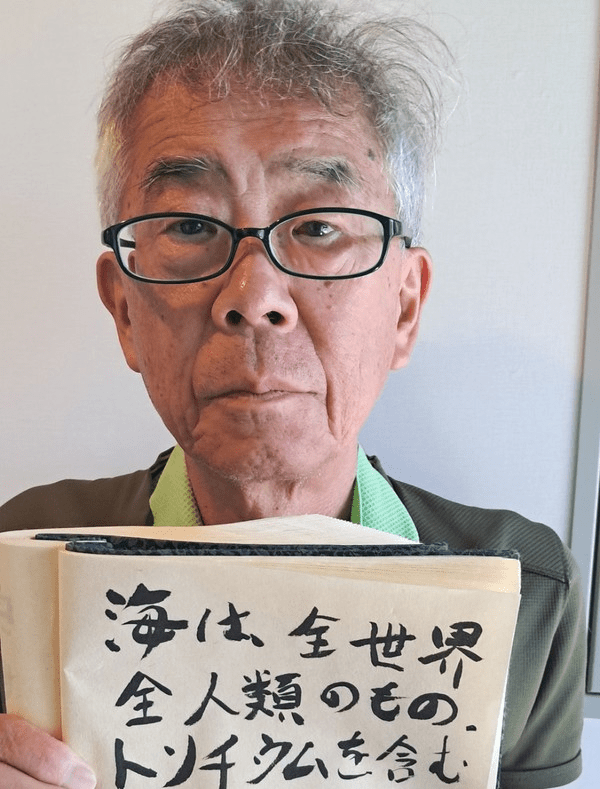 海は、全世界
全人類のもの、
トリチウムを含む